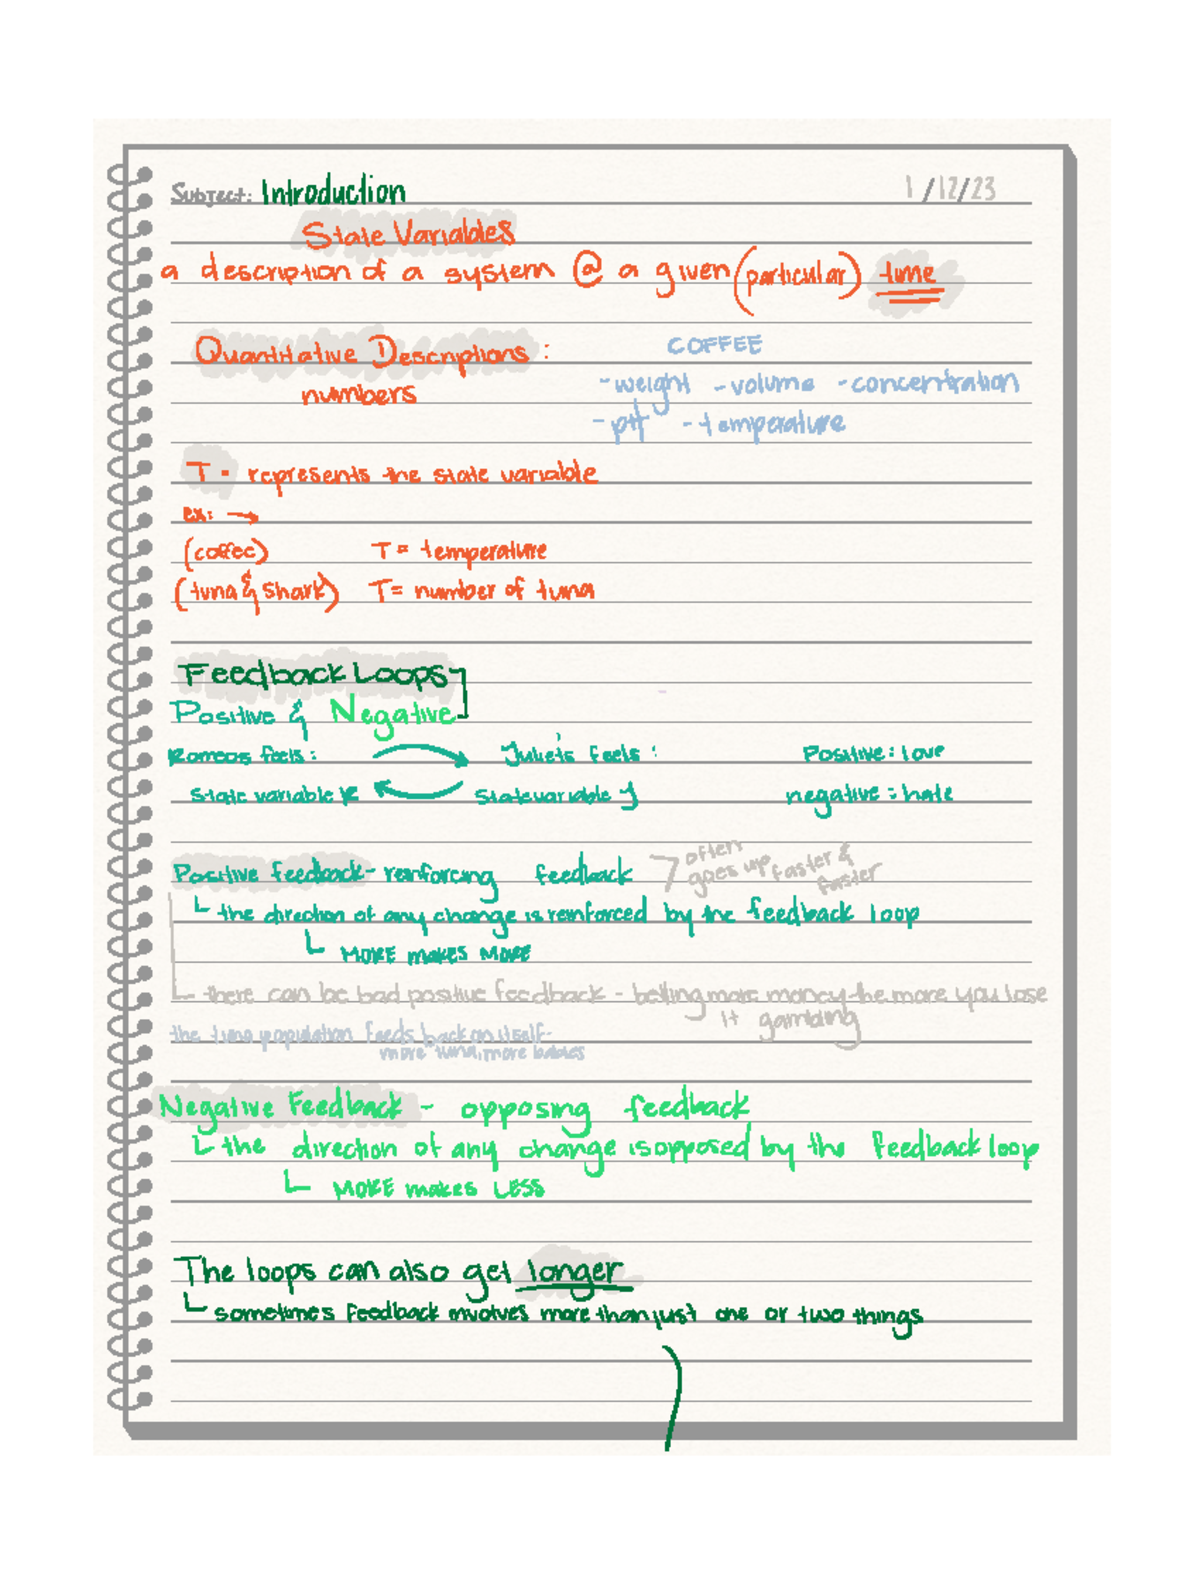 Subject: Introduction 1/12/23
State Variables
a description of a system @ a given (particular) time
Quantitative Descriptions:
numbers
COFFEE
-weight -volume -concentration
-pH -temperature
T = represents the state variable
ex: →
(coffee) T = temperature
(tuna & shark) T = number of tuna
Feedback Loops
Positive & Negative
Romeos feels: Juliet's feels: Positive: love
State variable R State variable J negative: hate
Positive feedback - reinforcing feedback
often
goes up faster &
faster
the direction of any change is reinforced by the feedback loop
MORE makes MORE
there can be bad positive feedback - betting more money the more you lose
it gambling
the tuna population feeds back on itself-
more tuna, more babies
Negative Feedback - opposing feedback
the direction of any change is opposed by the feedback loop
MORE makes LESS
The loops can also get longer
sometimes feedback involves more than just one or two things